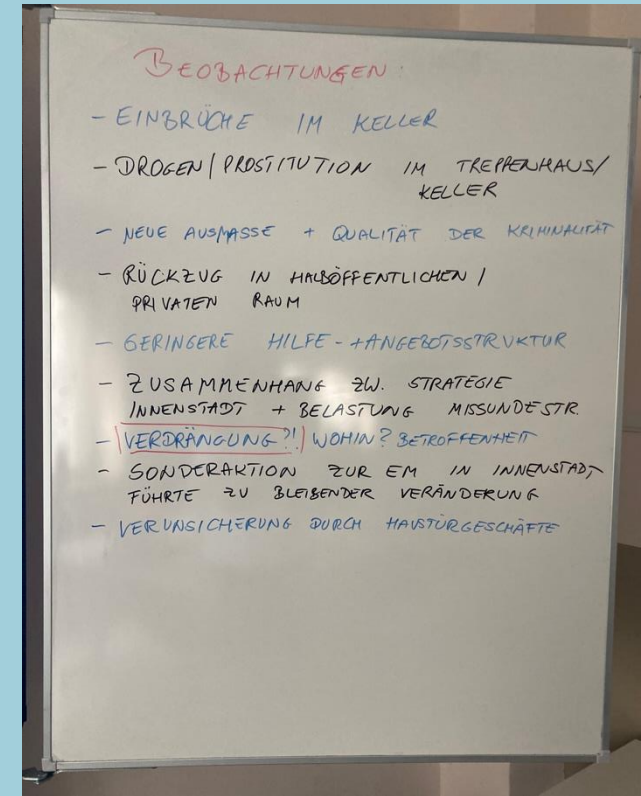 BEOBACHTUNGEN:
- EINBRÜCHE IM KELLER
- DROGEN/PROSTITUTION IM TREPPENHAUS/
KELLER
- NEUE AUSMASSE + QUALITÄT DER KRIMINALITÄT
- RÜCKZUG IN HALBÖFFENTLICHEN /
PRIVATEN RAUM
- GERINGERE HILFE- + ANGEBOTSSTRUKTUR
- ZUSAMMENHANG ZW. STRATEGIE
INNENSTADT + BELASTUNG MISSUNDESTR.
- VERDRÄNGUNG?! WOHIN? BETROFFENHEIT
- SONDERAKTION ZUR EM IN INNENSTADT
FÜHRTE ZU BLEIBENDER VERÄNDERUNG
- VERUNSICHERUNG DURCH HAUSTÜRGESCHÄFTE